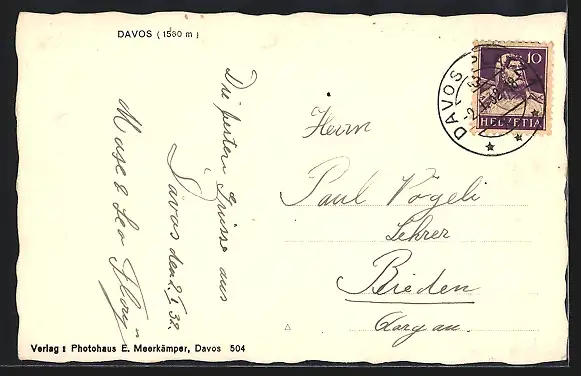 DAVOS (1560 m)
Die besten Grüsse aus
Davos den 2. I. 32.
& Leo
Herrn
Paul Vögeli
Lehrer
Rieden
Aargau.
DAVOS
10
HELVETIA
Verlag: Photohaus E. Meerkämper, Davos 504